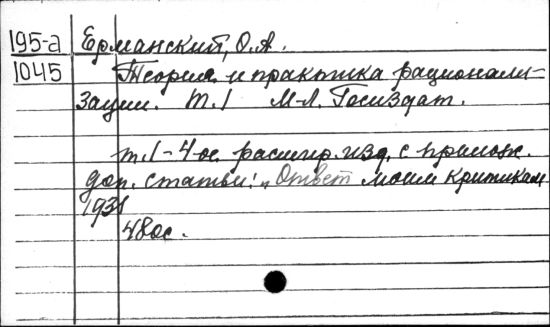 195-а Ерманский, О.А.
1045 Теория и практика рационали-
зации. Т.1 М-Л. Госиздат.
т.1-4-ое расшир. изд. с прилож.
доп. статьи: „Ответ моим критикам
1931
480с.